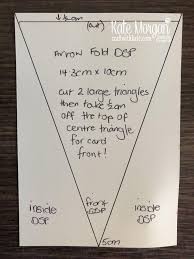 Kate Morgan
craftwithkate.com
(cut)
Arrow Fold DSP
14.3cm x 10cm
cut 2 large triangles
then take ½cm
off the top of
centre triangle
for card
front!
inside
DSP
front
DSP
inside
DSP
5cm